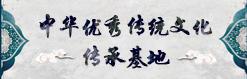 中华优秀传统文化
传承基地